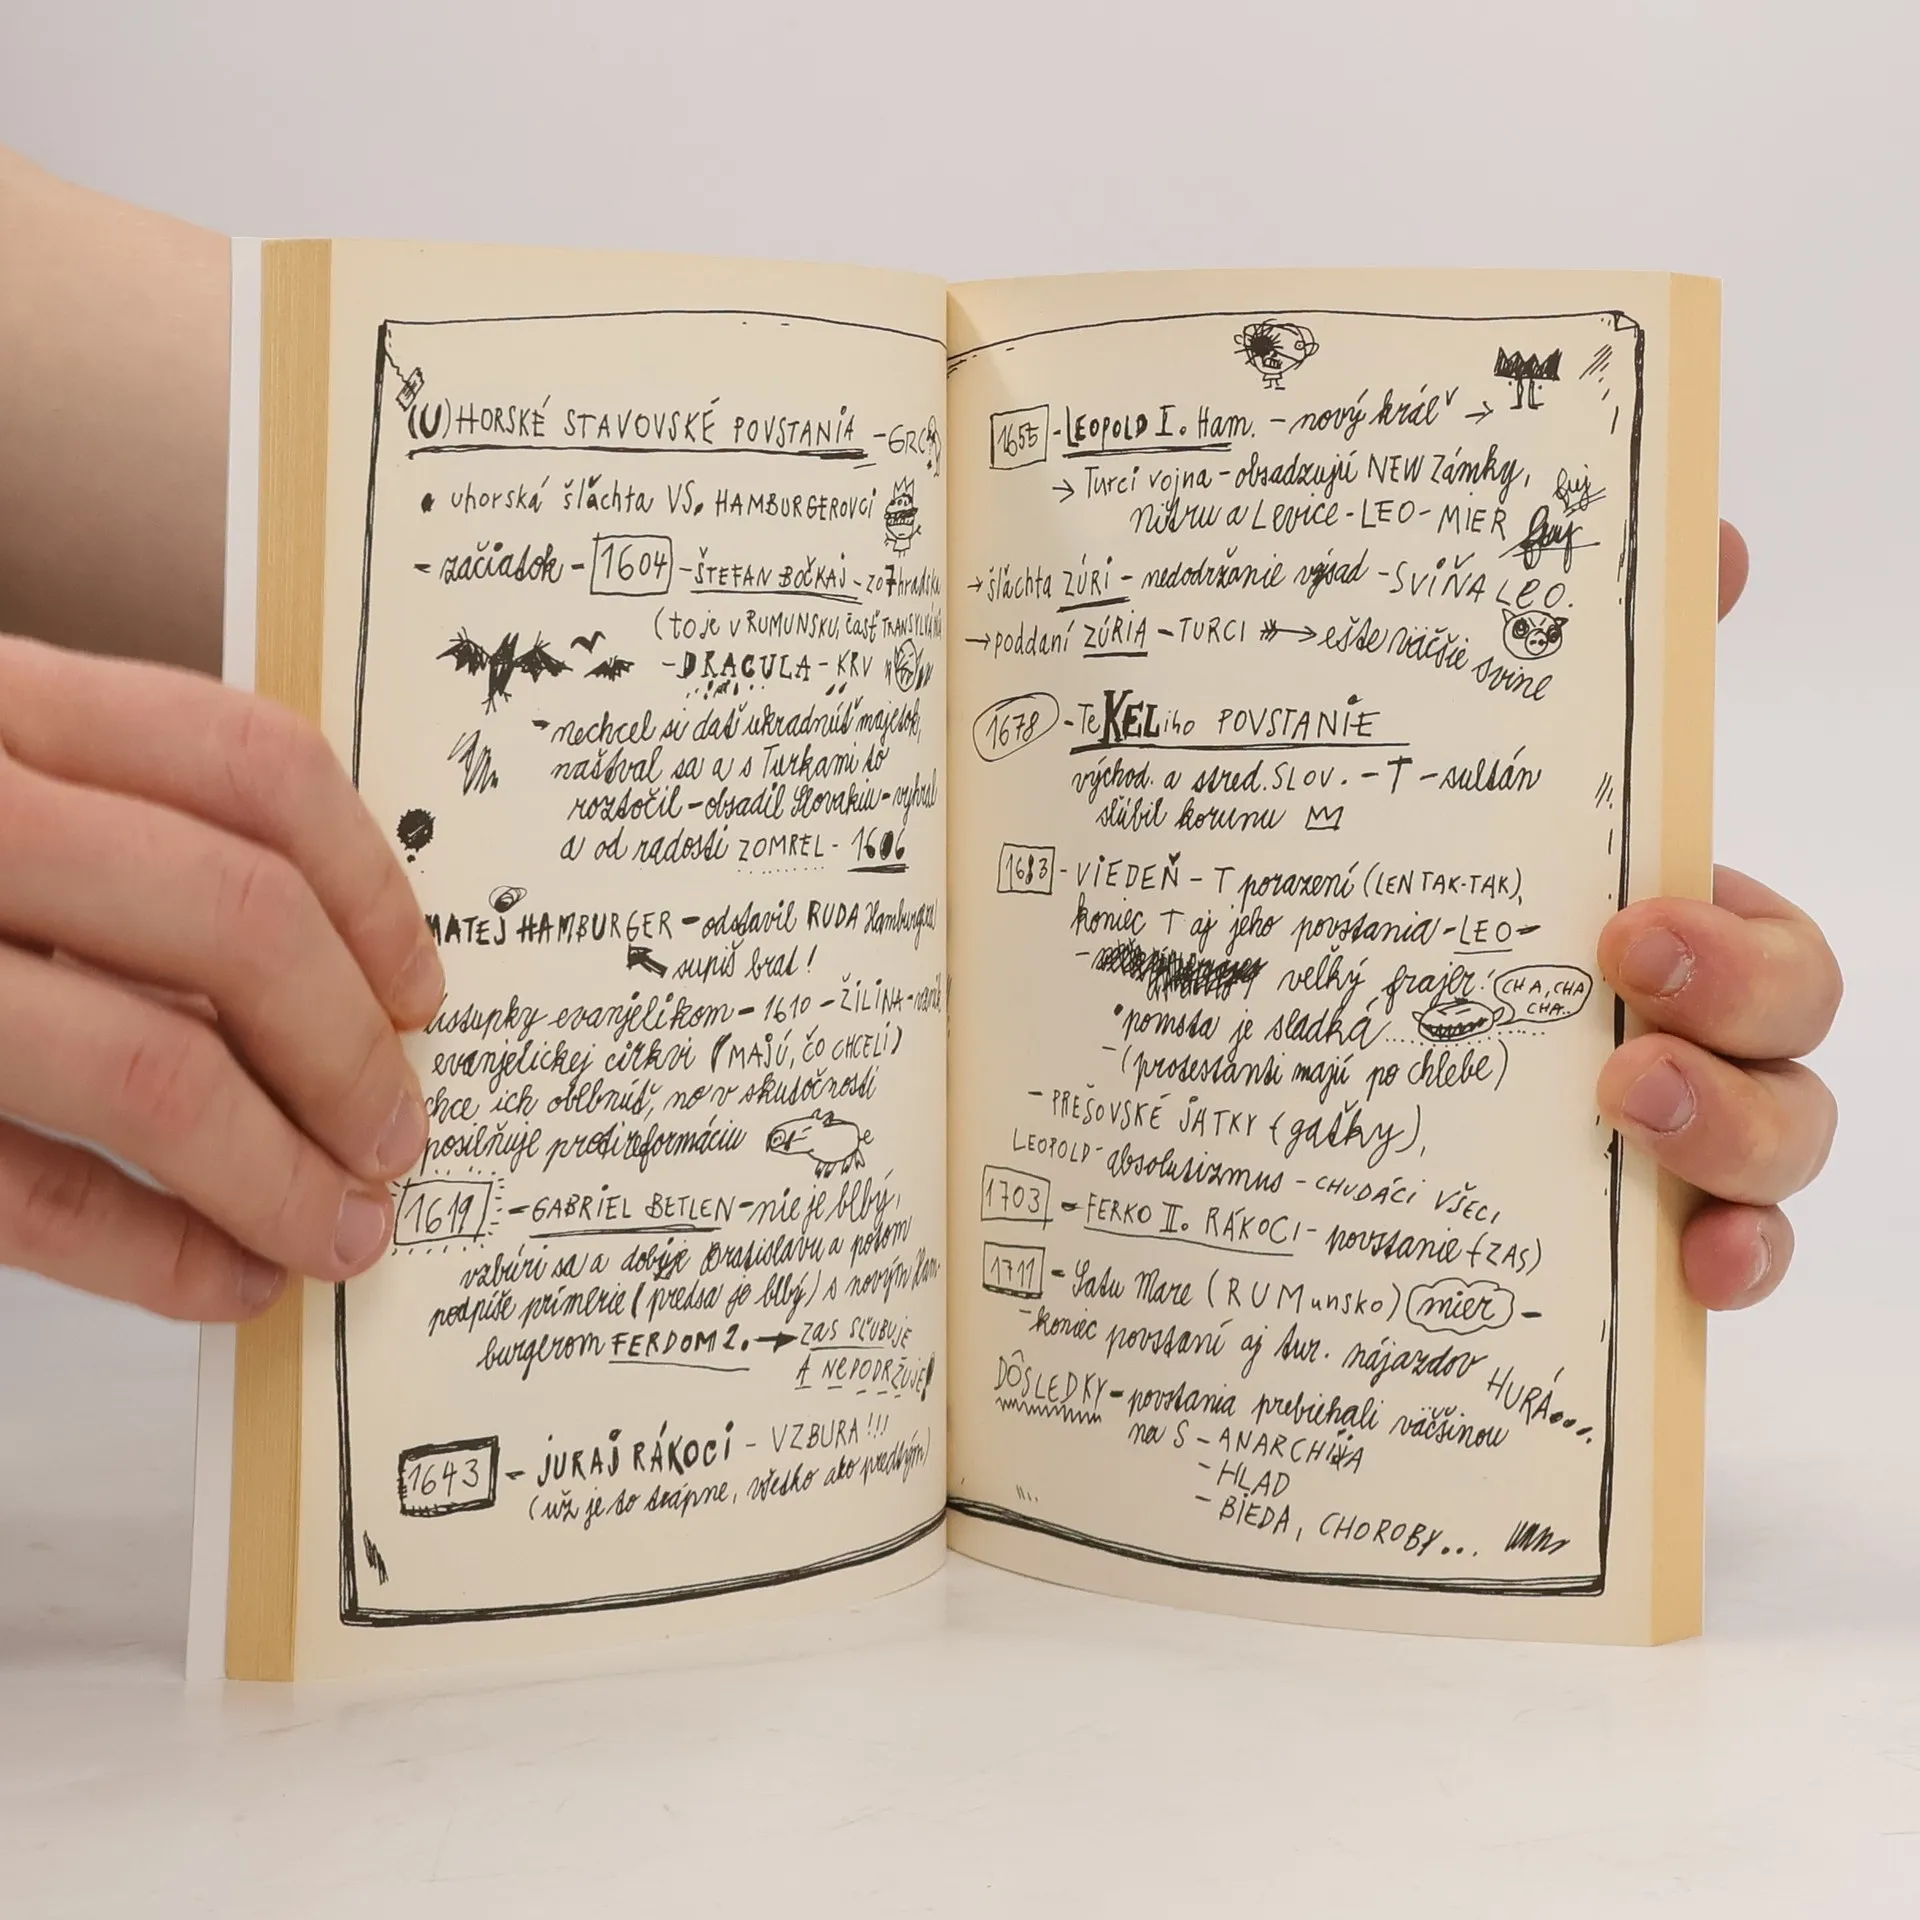 (U)HORSKÉ STAVOVSKÉ POVSTANIA - GRC
• uhorská šľachta VS. HAMBURGEROVCI
- začiatok - 1604 - ŠTEFAN BOČKAJ - zo 7hradska
(to je v RUMUNSKU, časť TRANSYLVÁNIA
- DRACULA - KRV
- nechcel si dať ukradnúť majetok,
naštval sa a s Turkami to
roztočil - obsadil Slovakiu - vyhral
a od radosti ZOMREL - 1606
MATEJ HAMBURGER - odstavil RUDA Hamburgera
supiš brat!
ústupky evanjelikom - 1610 - ŽILINA -
evanjelickej cirkvi (MAJÚ, ČO CHCELI)
chce ich oblbnúť, no v skutočnosti
posilňuje protireformáciu
1619 - GABRIEL BETLEN - nie je blbý,
vzbúri sa a dobyje Bratislavu a potom
podpíše prímerie (predsa je blbý) s novým Ham-
burgerom FERDOM 2. → ZAS SĽUBUJE
A NEPODRŽUJE!
1643 - JURAJ RÁKOCI - VZBURA!!!
(už je to trápne, všetko ako predtým)
1655 - LEOPOLD I. Ham. - nový kráľ →
→ Turci vojna - obsadzujú NEW Zámky,
Nitru a Levice - LEO - MIER
fuj
fuj
→ šľachta ZÚRI - nedodržanie výsad - SVIŇA LEO.
→ poddaní ZÚRIA - TURCI → ešte väčšie
svine
1678 - TeKELiho POVSTANIE
východ. a stred. SLOV. - T - sultán
sľúbil korunu
1683 - VIEDEŇ - T porazení (LEN TAK-TAK),
koniec T aj jeho povstania - LEO -
- veľký frajer!
CHA, CHA
CHA..
• pomsta je sladká...
- (protestanti majú po chlebe)
- PREŠOVSKÉ JATKY (gaťky),
LEOPOLD - absolutizmus - CHUDÁCI VŠECI
1703 - FERKO II. RÁKOCI - povstanie (ZAS)
1711 - Satu Mare (RUMunsko) mier -
- koniec povstaní aj tur. nájazdov
HURÁ....
DÔSLEDKY - povstania prebiehali väčšinou
na S - ANARCHIA
- HLAD
- BIEDA, CHOROBY...